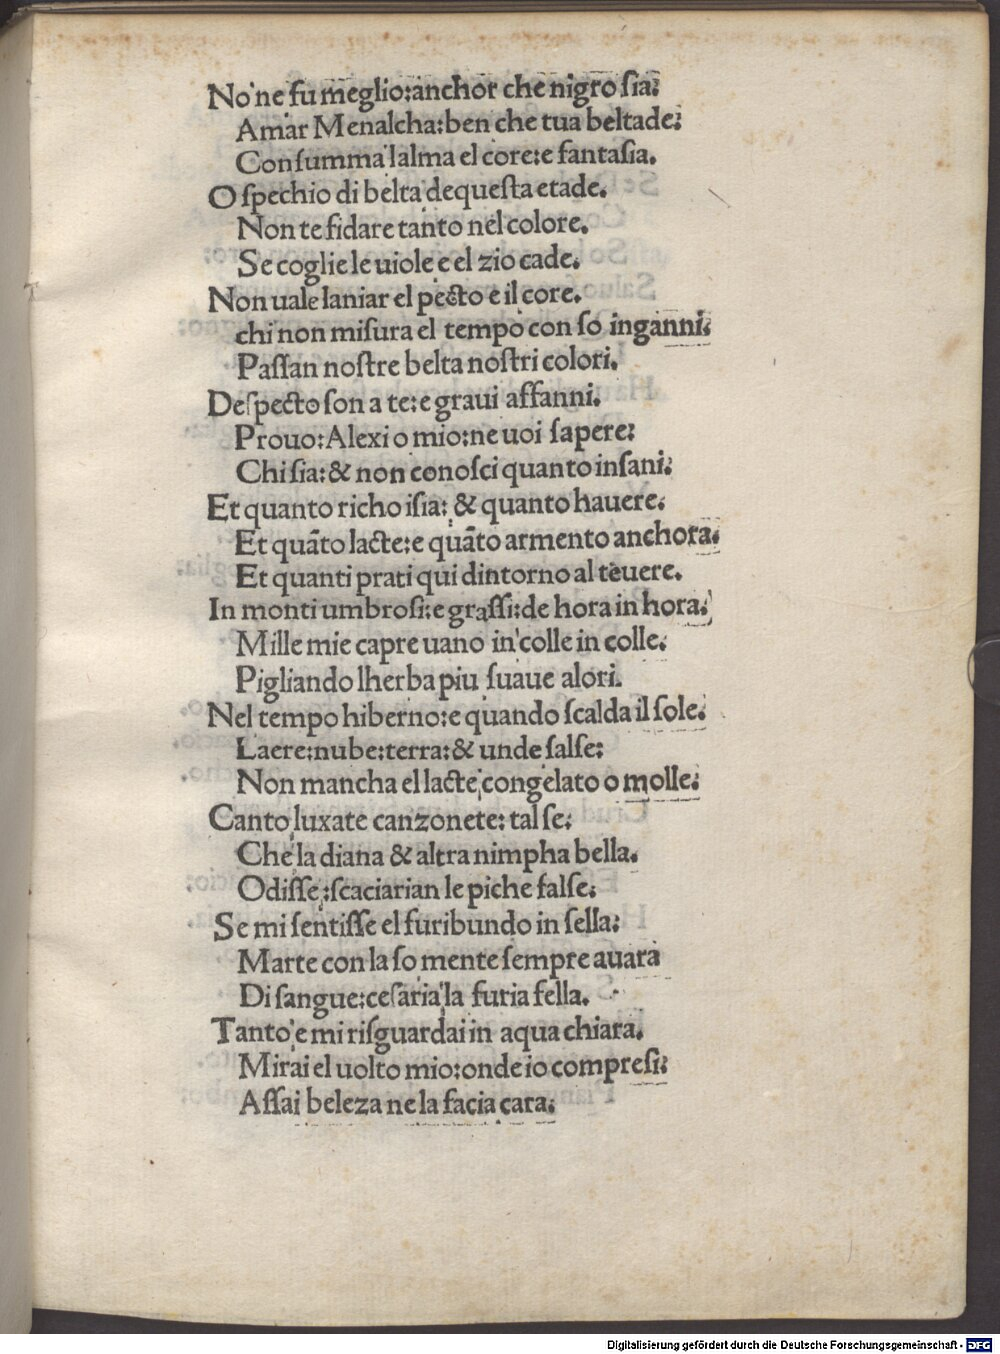 No ne fu meglio:anchor che nigro ſia:
Amar Menalcha:ben che tua beltade:
Conſumma lalma el core:e fantaſia.
O ſpechio di belta dequeſta etade.
Non te fidare tanto nel colore.
Se coglie le uiole e el zio cade.
Non uale laniar el pecto e il core.
chi non miſura el tempo con ſo inganni:
Paſſan noſtre belta noſtri colori.
Deſpecto ſon a te:e graui affanni.
Prouo:Alexi o mio:ne uoi ſapere:
Chi ſia:& non conoſci quanto inſani:
Et quanto richo iſia: & quanto hauere.
Et quāto lacte:e quāto armento anchora.
Et quanti prati qui dintorno al teuere.
In monti umbroſi:e graſſi:de hora in hora.
Mille mie capre uano in colle in colle.
Pigliando lherba piu ſuaue alori.
Nel tempo hiberno:e quando ſcalda il ſole.
Laere:nube:terra:& unde ſalſe:
Non mancha el lacte congelato o molle:
Canto luxate canzonete:tal ſe:
Che la diana & altra nimpha bella.
Odiſſe:ſcaciarian le piche falſe:
Se mi ſentiſſe el furibundo in ſella:
Marte con la ſo mente ſempre auara
Di ſangue:ceſaria la furia fella.
Tanto e mi riſguardai in aqua chiara.
Mirai el uolto mio:onde io compreſi:
Aſſai beleza ne la facia cara:
Digitalisierung gefördert durch die Deutsche Forschungsgemeinschaft - DFG